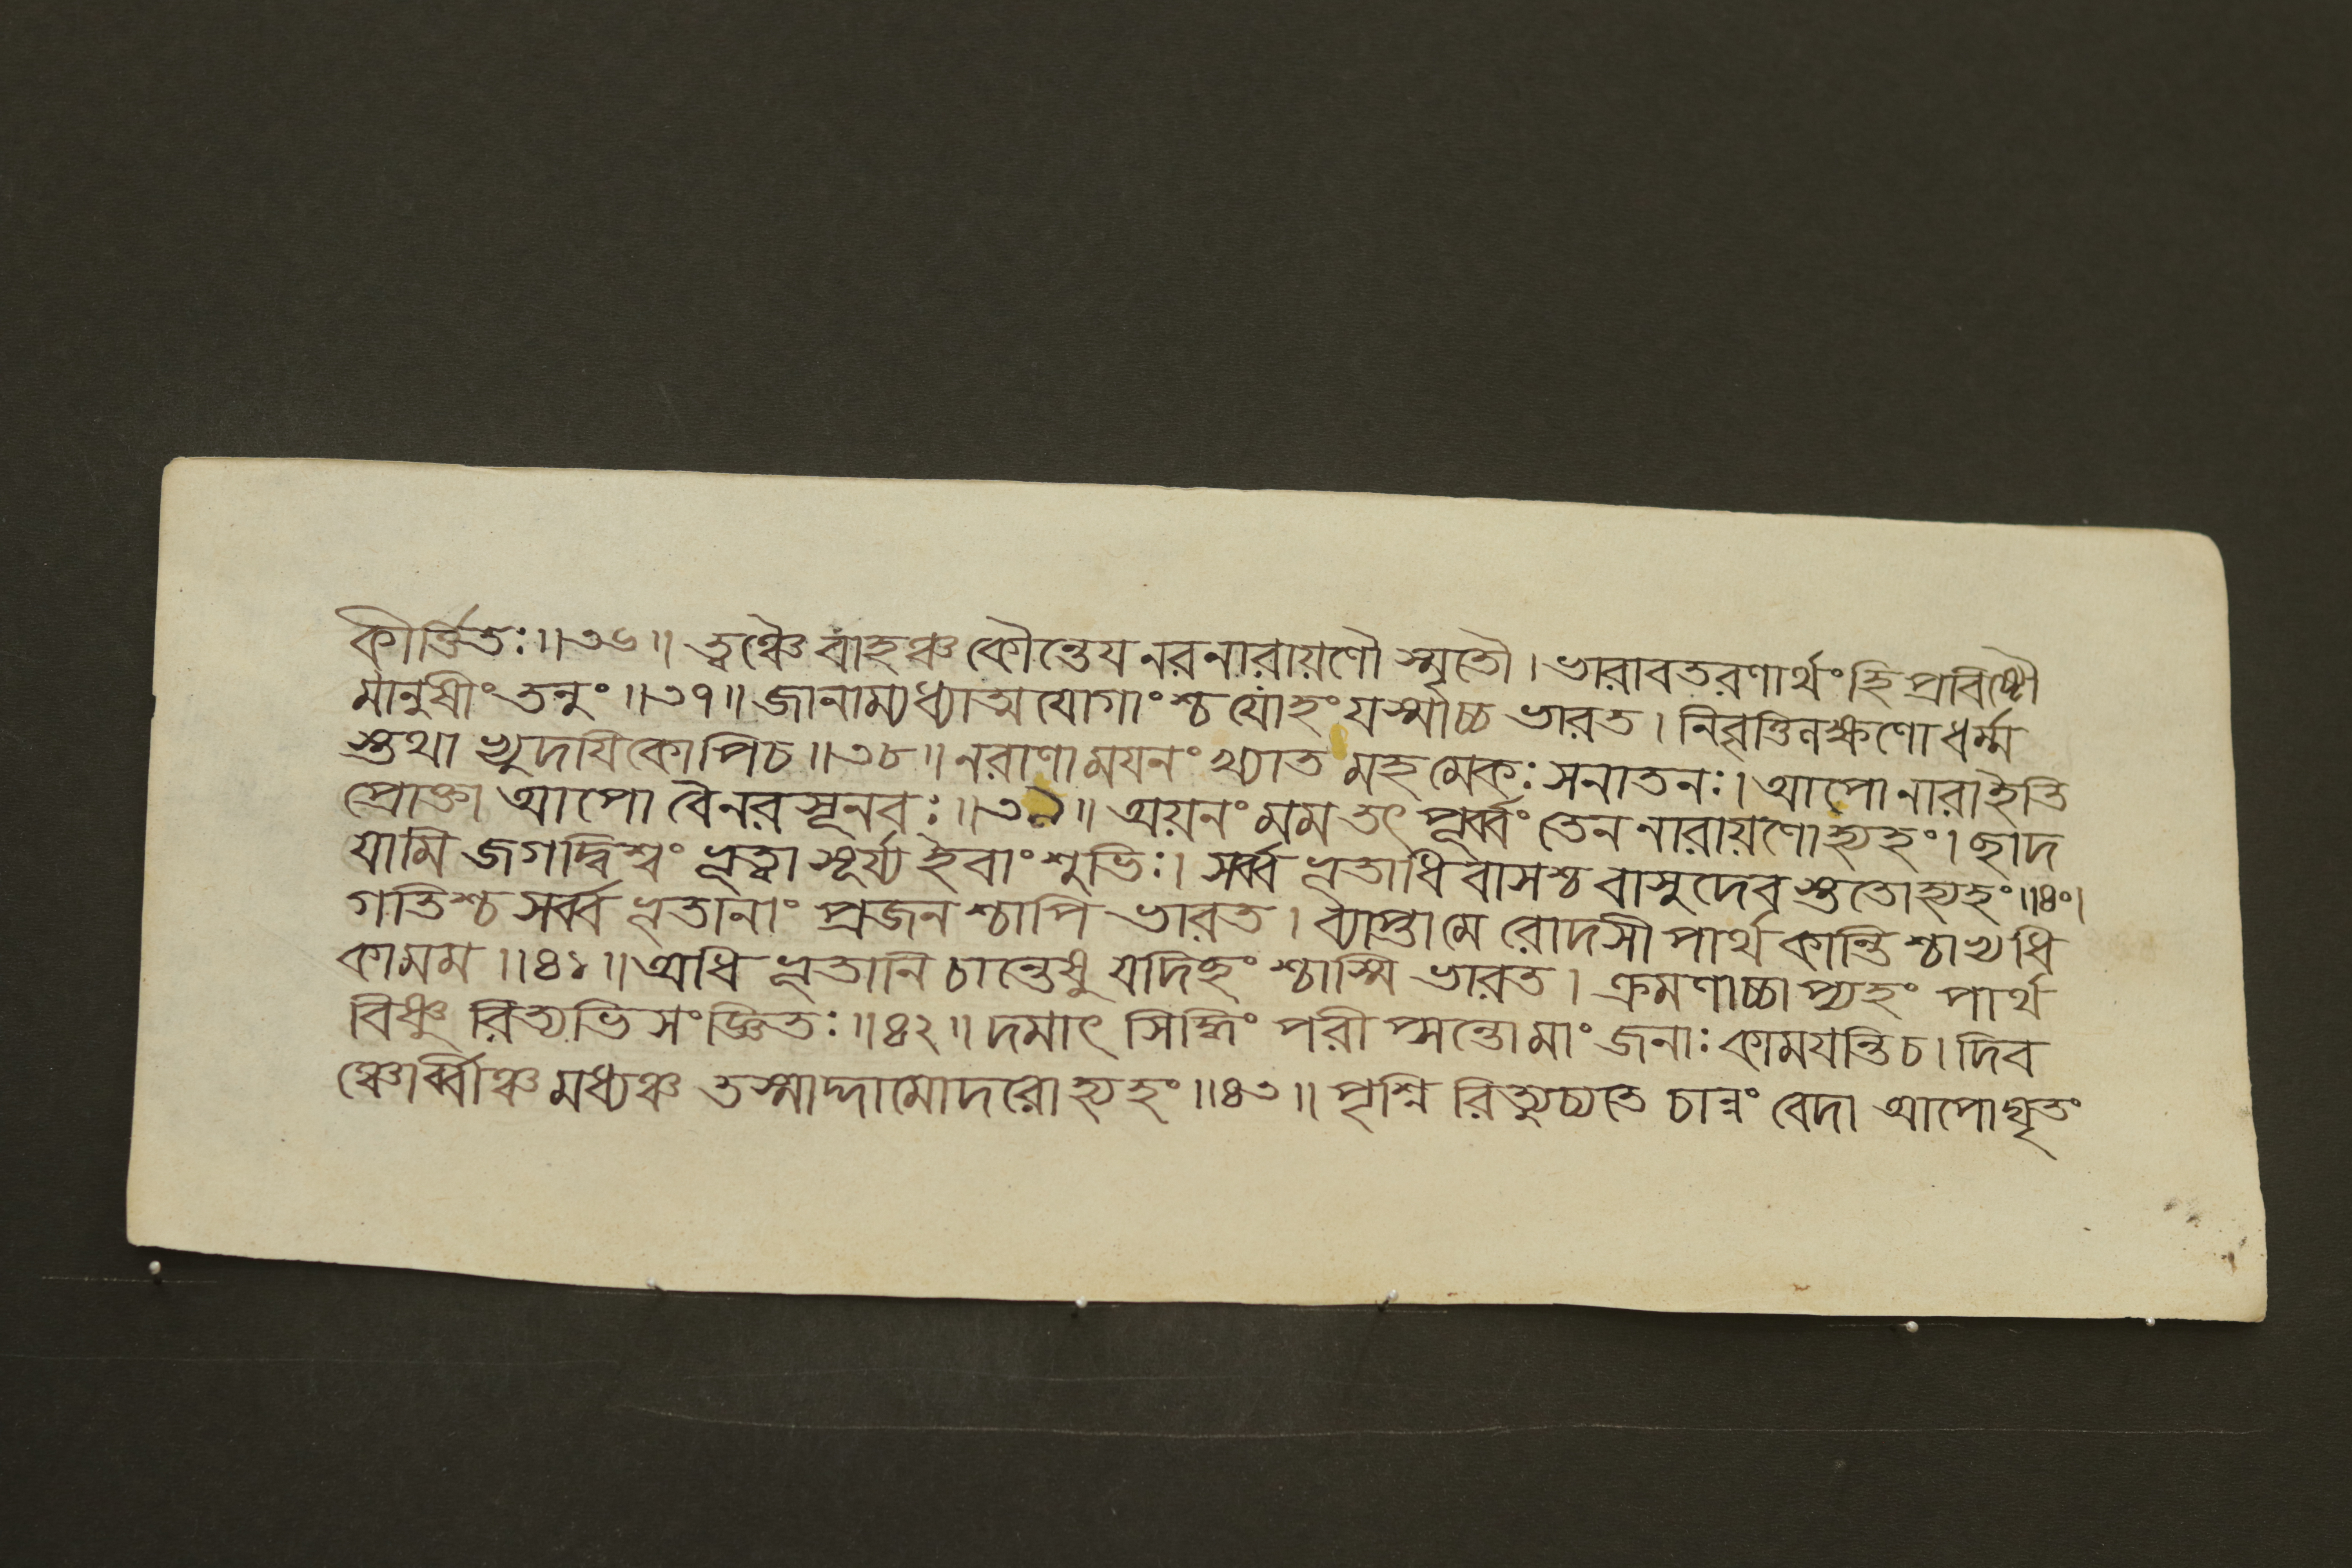 কীর্ত্তিতঃ॥৩৬॥ ত্বঞ্চৈবাহঞ্চ কৌন্তেয নরনারায়ণৌ স্মৃতৌ। ভারাবতরণার্থং হি প্রবিষ্টৌ
মানুষীং তনুং॥৩৭॥ জানাম্যধ্যাত্ম যোগাংশ্চ যোহং যস্মাচ্চ ভারত। নিবৃত্তিলক্ষণো ধর্ম্ম
স্তথা ভ্যুদযিকোপিচ॥৩৮॥ নরাণাময়নং খ্যাত মহমেকঃ সনাতনঃ। আপোনারাইতি
প্রোক্তা আপো বৈনর সূনবঃ॥৩৯॥ অয়নং মম তৎ পূর্ব্বং তেন নারায়ণো হ্যহং। ছাদ
যামি জগদ্বিশ্বং ভূত্বা সূর্য্য ইবাংশুভিঃ। সর্ব্ব ভূতাধি বাসশ্চ বাসুদেব স্ততোহ্যহং॥৪০।
গতিশ্চ সর্ব্ব ভূতানাং প্রজন শ্চাপি ভারত। ব্যাপ্তা মে রোদসী পার্থ কান্তি শ্চাভ্যধি
কামম॥৪১॥ অধি ভূতানি চান্তেষু যদিহং শ্চাস্মি ভারত। ক্রমণাচ্চাপ্যহং পার্থ
বিষ্ণু রিত্যভি সংজ্ঞিতঃ॥৪২॥ দমাৎ সিদ্ধিং পরীপ্সন্তো মাং জনাঃ কামযন্তি চ। দিব
ঞ্চোর্ব্বীঞ্চ মধ্যঞ্চ তস্মাদ্দামোদরো হ্যহং॥৪৩॥ পৃশ্নি রিত্যুচ্যতে চান্নং বেদা আপোঘৃতং